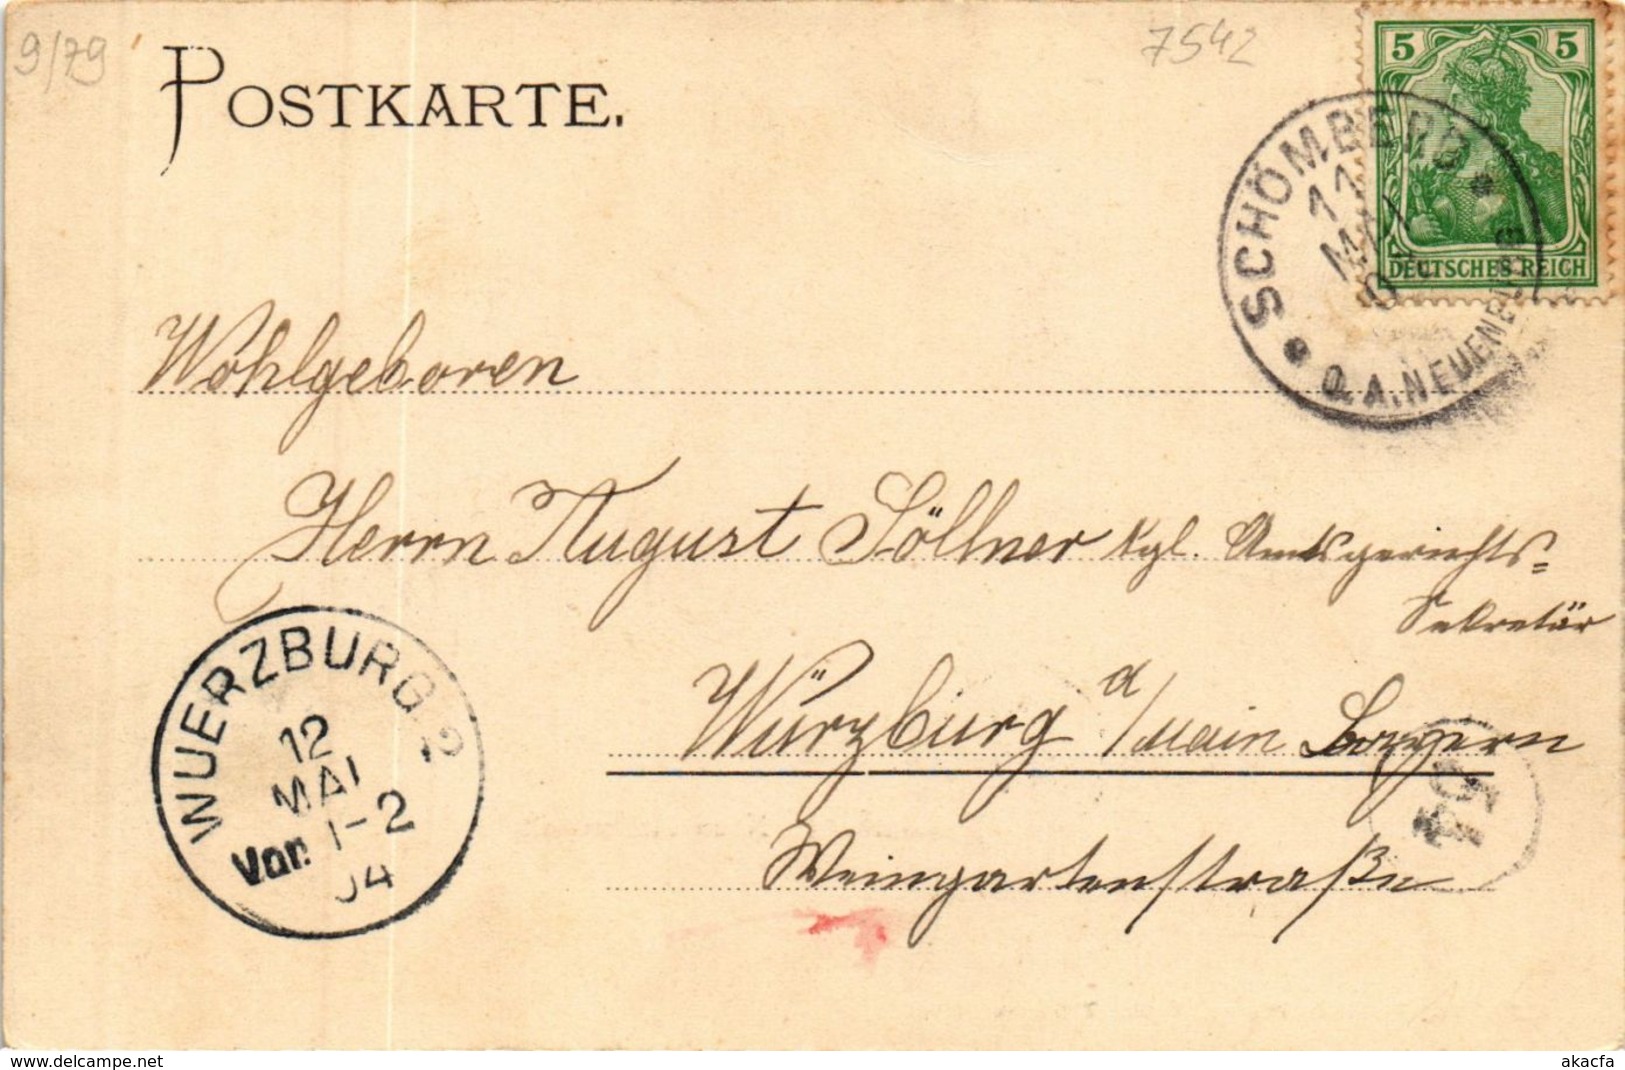 9/79
7542
POSTKARTE.
5 5
DEUTSCHES REICH
SCHÖMBERG
11
MAI
O.A. NEUENBÜRG
Wohlgeboren
Herrn August Söllner kgl. Amtsgerichts=
Sekretär
Würzburg a/Main Bayern
Weingartenstraße
WUERZBURG 2
12
MAI
Vor. 1-2
04
54
www.delcampe.net
akacfa